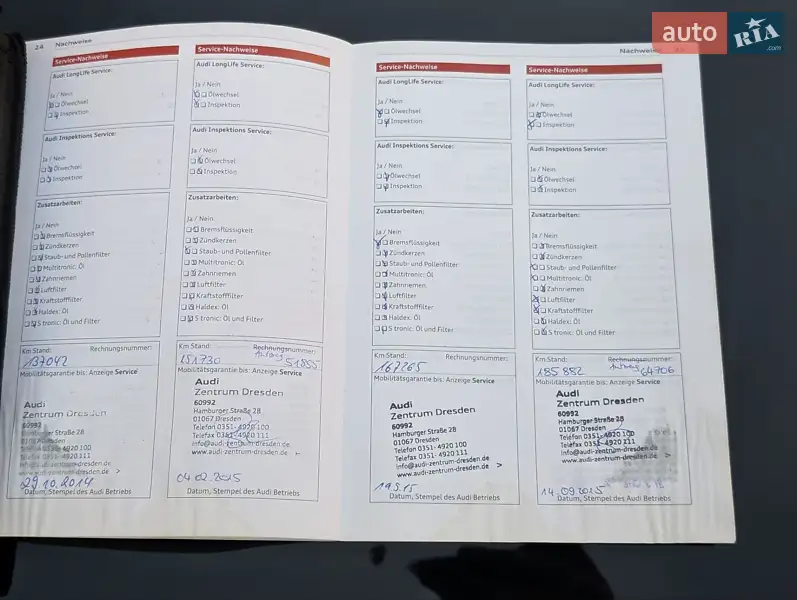 auto RIA .com
24 Nachweise
Service-Nachweise
Audi LongLife Service:
Ja / Nein
Ölwechsel
Inspektion
Audi Inspektions Service:
Ja / Nein
Ölwechsel
Inspektion
Zusatzarbeiten:
Ja / Nein
Bremsflüssigkeit
Zündkerzen
Staub- und Pollenfilter
Multitronic: Öl
Zahnriemen
Luftfilter
Kraftstofffilter
Haldex: Öl
S tronic: Öl und Filter
Km Stand: Rechnungsnummer:
137042
Mobilitätsgarantie bis: Anzeige Service
Audi
Zentrum Dresden
60992
Hamburger Straße 28
01067 Dresden
29.10.2014
Datum, Stempel des Audi Betriebs
Service-Nachweise
Audi LongLife Service:
Ja / Nein
Ölwechsel
Inspektion
Audi Inspektions Service:
Ja / Nein
Ölwechsel
Inspektion
Zusatzarbeiten:
Ja / Nein
Bremsflüssigkeit
Zündkerzen
Staub- und Pollenfilter
Multitronic: Öl
Zahnriemen
Luftfilter
Kraftstofffilter
Haldex: Öl
S tronic: Öl und Filter
Km Stand: Rechnungsnummer:
151730 Auftrag 51855
Mobilitätsgarantie bis: Anzeige Service
Audi
Zentrum Dresden
60992
Hamburger Straße 28
01067 Dresden
Telefon 0351- 4920 100
Telefax 0351- 4920 111
info@audi-zentrum-dresden.de
www.audi-zentrum-dresden.de
04.02.2015
Datum, Stempel des Audi Betriebs
Nachweise
Service-Nachweise
Audi LongLife Service:
Ja / Nein
Ölwechsel
Inspektion
Audi Inspektions Service:
Ja / Nein
Ölwechsel
Inspektion
Zusatzarbeiten:
Ja / Nein
Bremsflüssigkeit
Zündkerzen
Staub- und Pollenfilter
Multitronic: Öl
Zahnriemen
Luftfilter
Kraftstofffilter
Haldex: Öl
S tronic: Öl und Filter
Km Stand: Rechnungsnummer:
167265
Mobilitätsgarantie bis: Anzeige Service
Audi
Zentrum Dresden
60992
Hamburger Straße 28
01067 Dresden
Telefon 0351- 4920 100
Telefax 0351- 4920 111
info@audi-zentrum-dresden.de
www.audi-zentrum-dresden.de >
Datum, Stempel des Audi Betriebs
Service-Nachweise
Audi LongLife Service:
Ja / Nein
Ölwechsel
Inspektion
Audi Inspektions Service:
Ja / Nein
Ölwechsel
Inspektion
Zusatzarbeiten:
Ja / Nein
Bremsflüssigkeit
Zündkerzen
Staub- und Pollenfilter
Multitronic: Öl
Zahnriemen
Luftfilter
Kraftstofffilter
Haldex: Öl
S tronic: Öl und Filter
Km Stand: Rechnungsnummer:
185882 Auftrag 64706
Mobilitätsgarantie bis: Anzeige Service
Audi
Zentrum Dresden
60992
Hamburger Straße 28
01067 Dresden
Telefon 0351- 4920 100
Telefax 0351- 4920 111
info@audi-zentrum-dresden.de
www.audi-zentrum-dresden.de >
14.09.2015
Datum, Stempel des Audi Betriebs